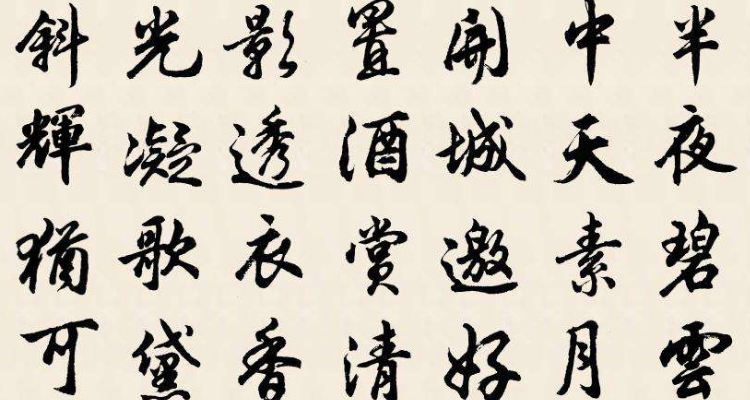 半夜碧雲
中天素月
開城邀好
置酒賞清
影透衣香
光凝歌黛
斜輝猶可